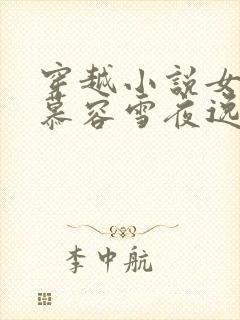 穿越小说女
慕容雪夜逸
李中航